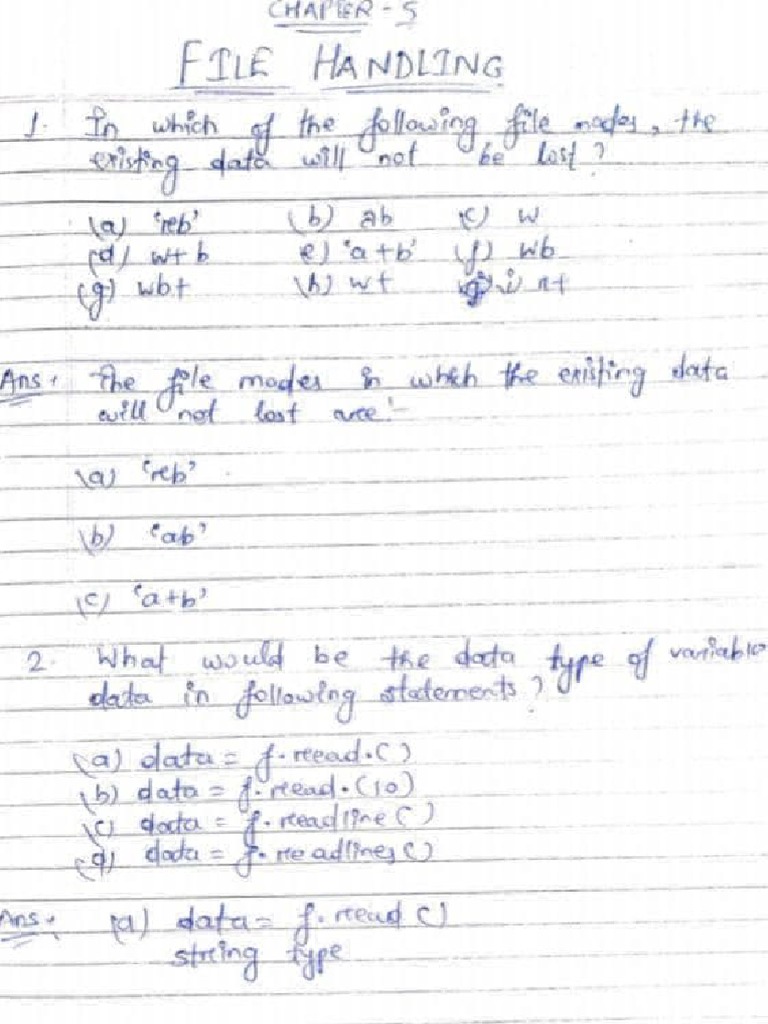 CHAPTER-5
FILE HANDLING
1. In which of the following file modes, the
existing data will not be lost?
(a) 'rb' (b) ab (c) w
(d) w+b (e) 'a+b' (f) wb
(g) wb+ (h) w+ (i) r+
Ans: The file modes in which the existing data
will not lost are:-
(a) 'rb'
(b) 'ab'
(c) 'a+b'
2. What would be the data type of variable
data in following statements?
(a) data = f.read.()
(b) data = f.read.(10)
(c) data = f.readline()
(d) data = f.readlines()
Ans: (a) data = f.read()
string type